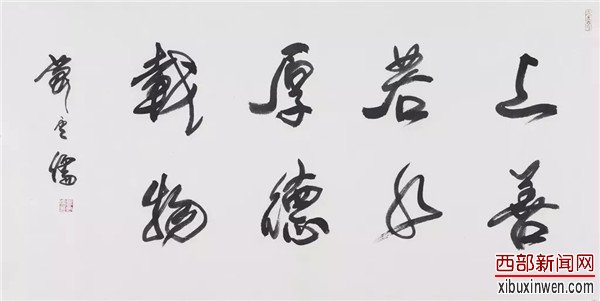 上善
若水
厚德
載物
萧云儒
西部新闻网
xibuxinwen.com